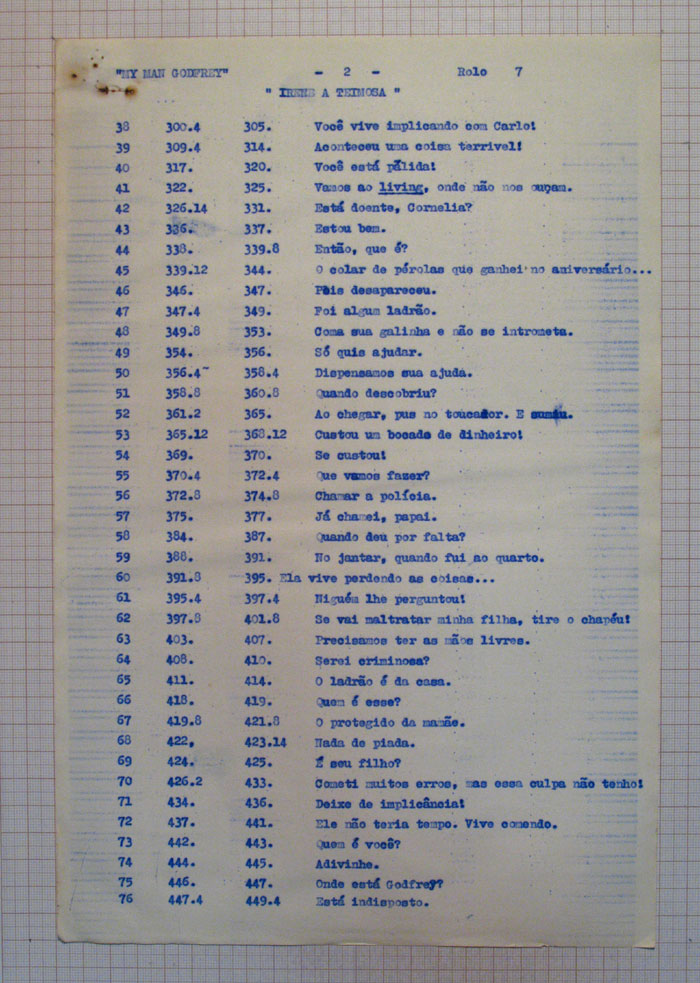 "MY MAN GODFREY" - 2 - Rolo 7
" IRENE A TEIMOSA "
38 300.4 305. Você vive implicando com Carlo!
39 309.4 314. Aconteceu uma coisa terrivel!
40 317. 320. Você está pálida!
41 322. 325. Vamos ao living, onde não nos ouçam.
42 326.14 331. Está doente, Cornelia?
43 336. 337. Estou bem.
44 338. 339.8 Então, que é?
45 339.12 344. O colar de pérolas que ganhei no aniversário...
46 346. 347. Pois desapareceu.
47 347.4 349. Foi algum ladrão.
48 349.8 353. Coma sua galinha e não se intrometa.
49 354. 356. Só quis ajudar.
50 356.4 358.4 Dispensamos sua ajuda.
51 358.8 360.8 Quando descobriu?
52 361.2 365. Ao chegar, pus no toucador. E sumiu.
53 365.12 368.12 Custou um bocado de dinheiro!
54 369. 370. Se custou!
55 370.4 372.4 Que vamos fazer?
56 372.8 374.8 Chamar a polícia.
57 375. 377. Já chamei, papai.
58 384. 387. Quando deu por falta?
59 388. 391. No jantar, quando fui ao quarto.
60 391.8 395. Ela vive perdendo as coisas...
61 395.4 397.4 Niguém lhe perguntou!
62 397.8 401.8 Se vai maltratar minha filha, tire o chapéu!
63 403. 407. Precisamos ter as mãos livres.
64 408. 410. Serei criminosa?
65 411. 414. O ladrão é da casa.
66 418. 419. Quem é esse?
67 419.8 421.8 O protegido da mamãe.
68 422, 423.14 Nada de piada.
69 424. 425. É seu filho?
70 426.2 433. Cometi muitos erros, mas essa culpa não tenho!
71 434. 436. Deixe de implicância!
72 437. 441. Ele não teria tempo. Vive comendo.
73 442. 443. Quem é você?
74 444. 445. Adivinhe.
75 446. 447. Onde está Godfrey?
76 447.4 449.4 Está indisposto.